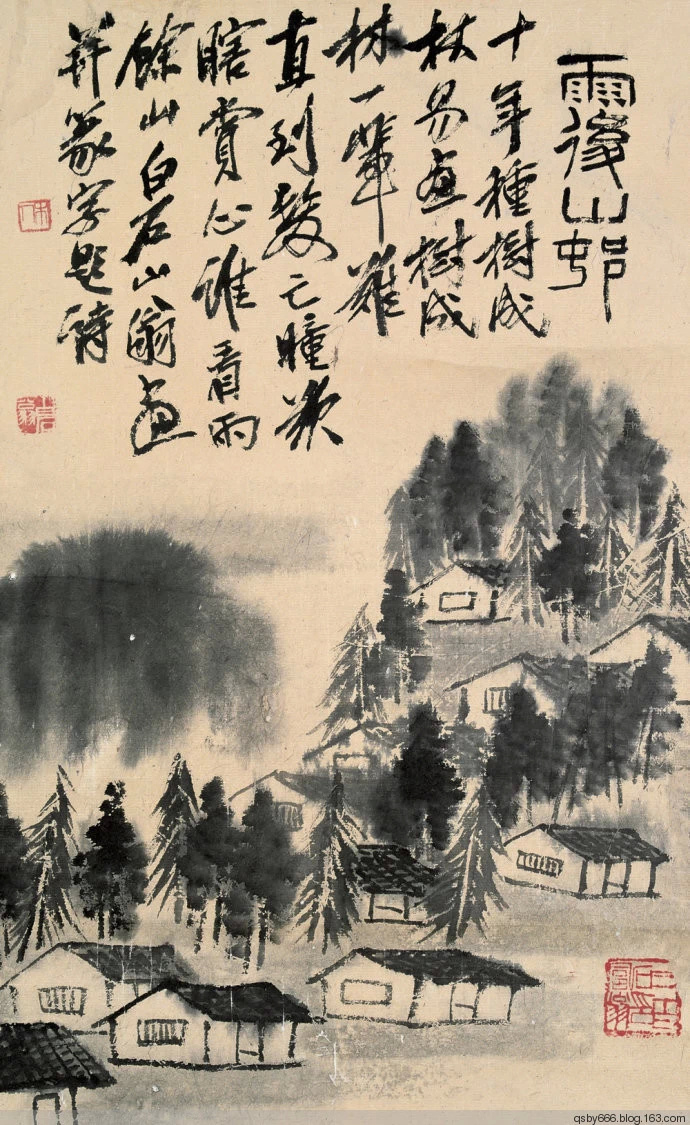 雨後山邨
十年種樹成
林易画樹成
林一輩難
直到髮亡瞳欲
瞎賞心誰看雨
餘山白石山翁画
并篆字題詩
qsby666.blog.163.com